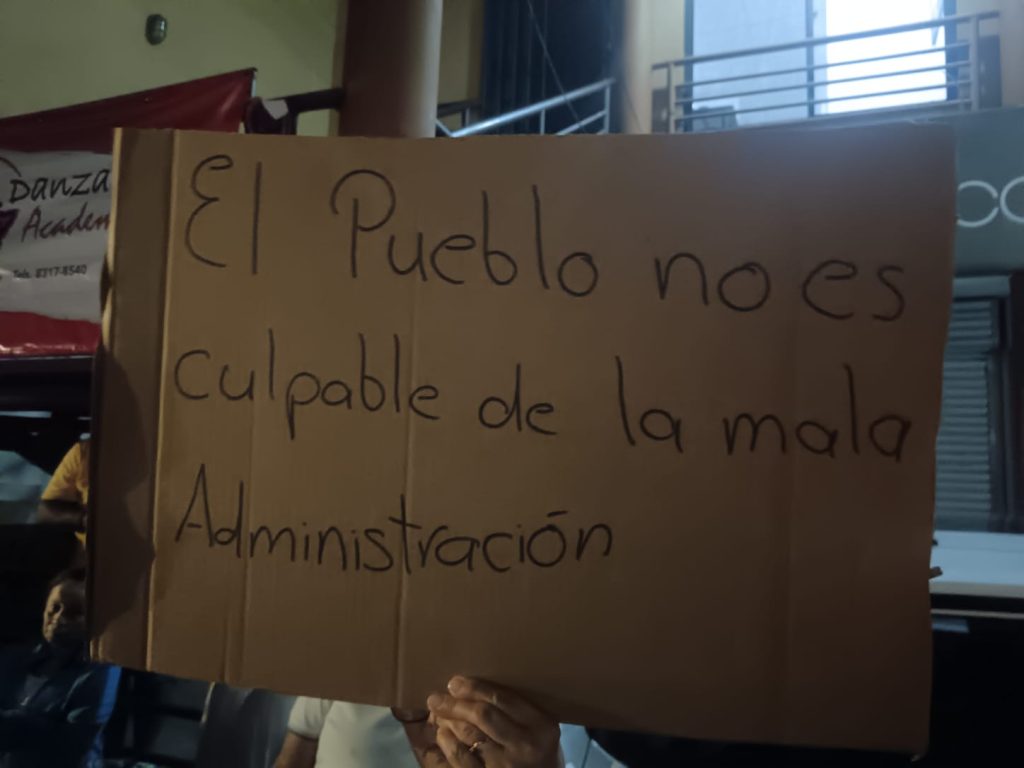 El Pueblo no es
culpable de la mala
Administración
Danza
Academ
Tels. 8317-8540